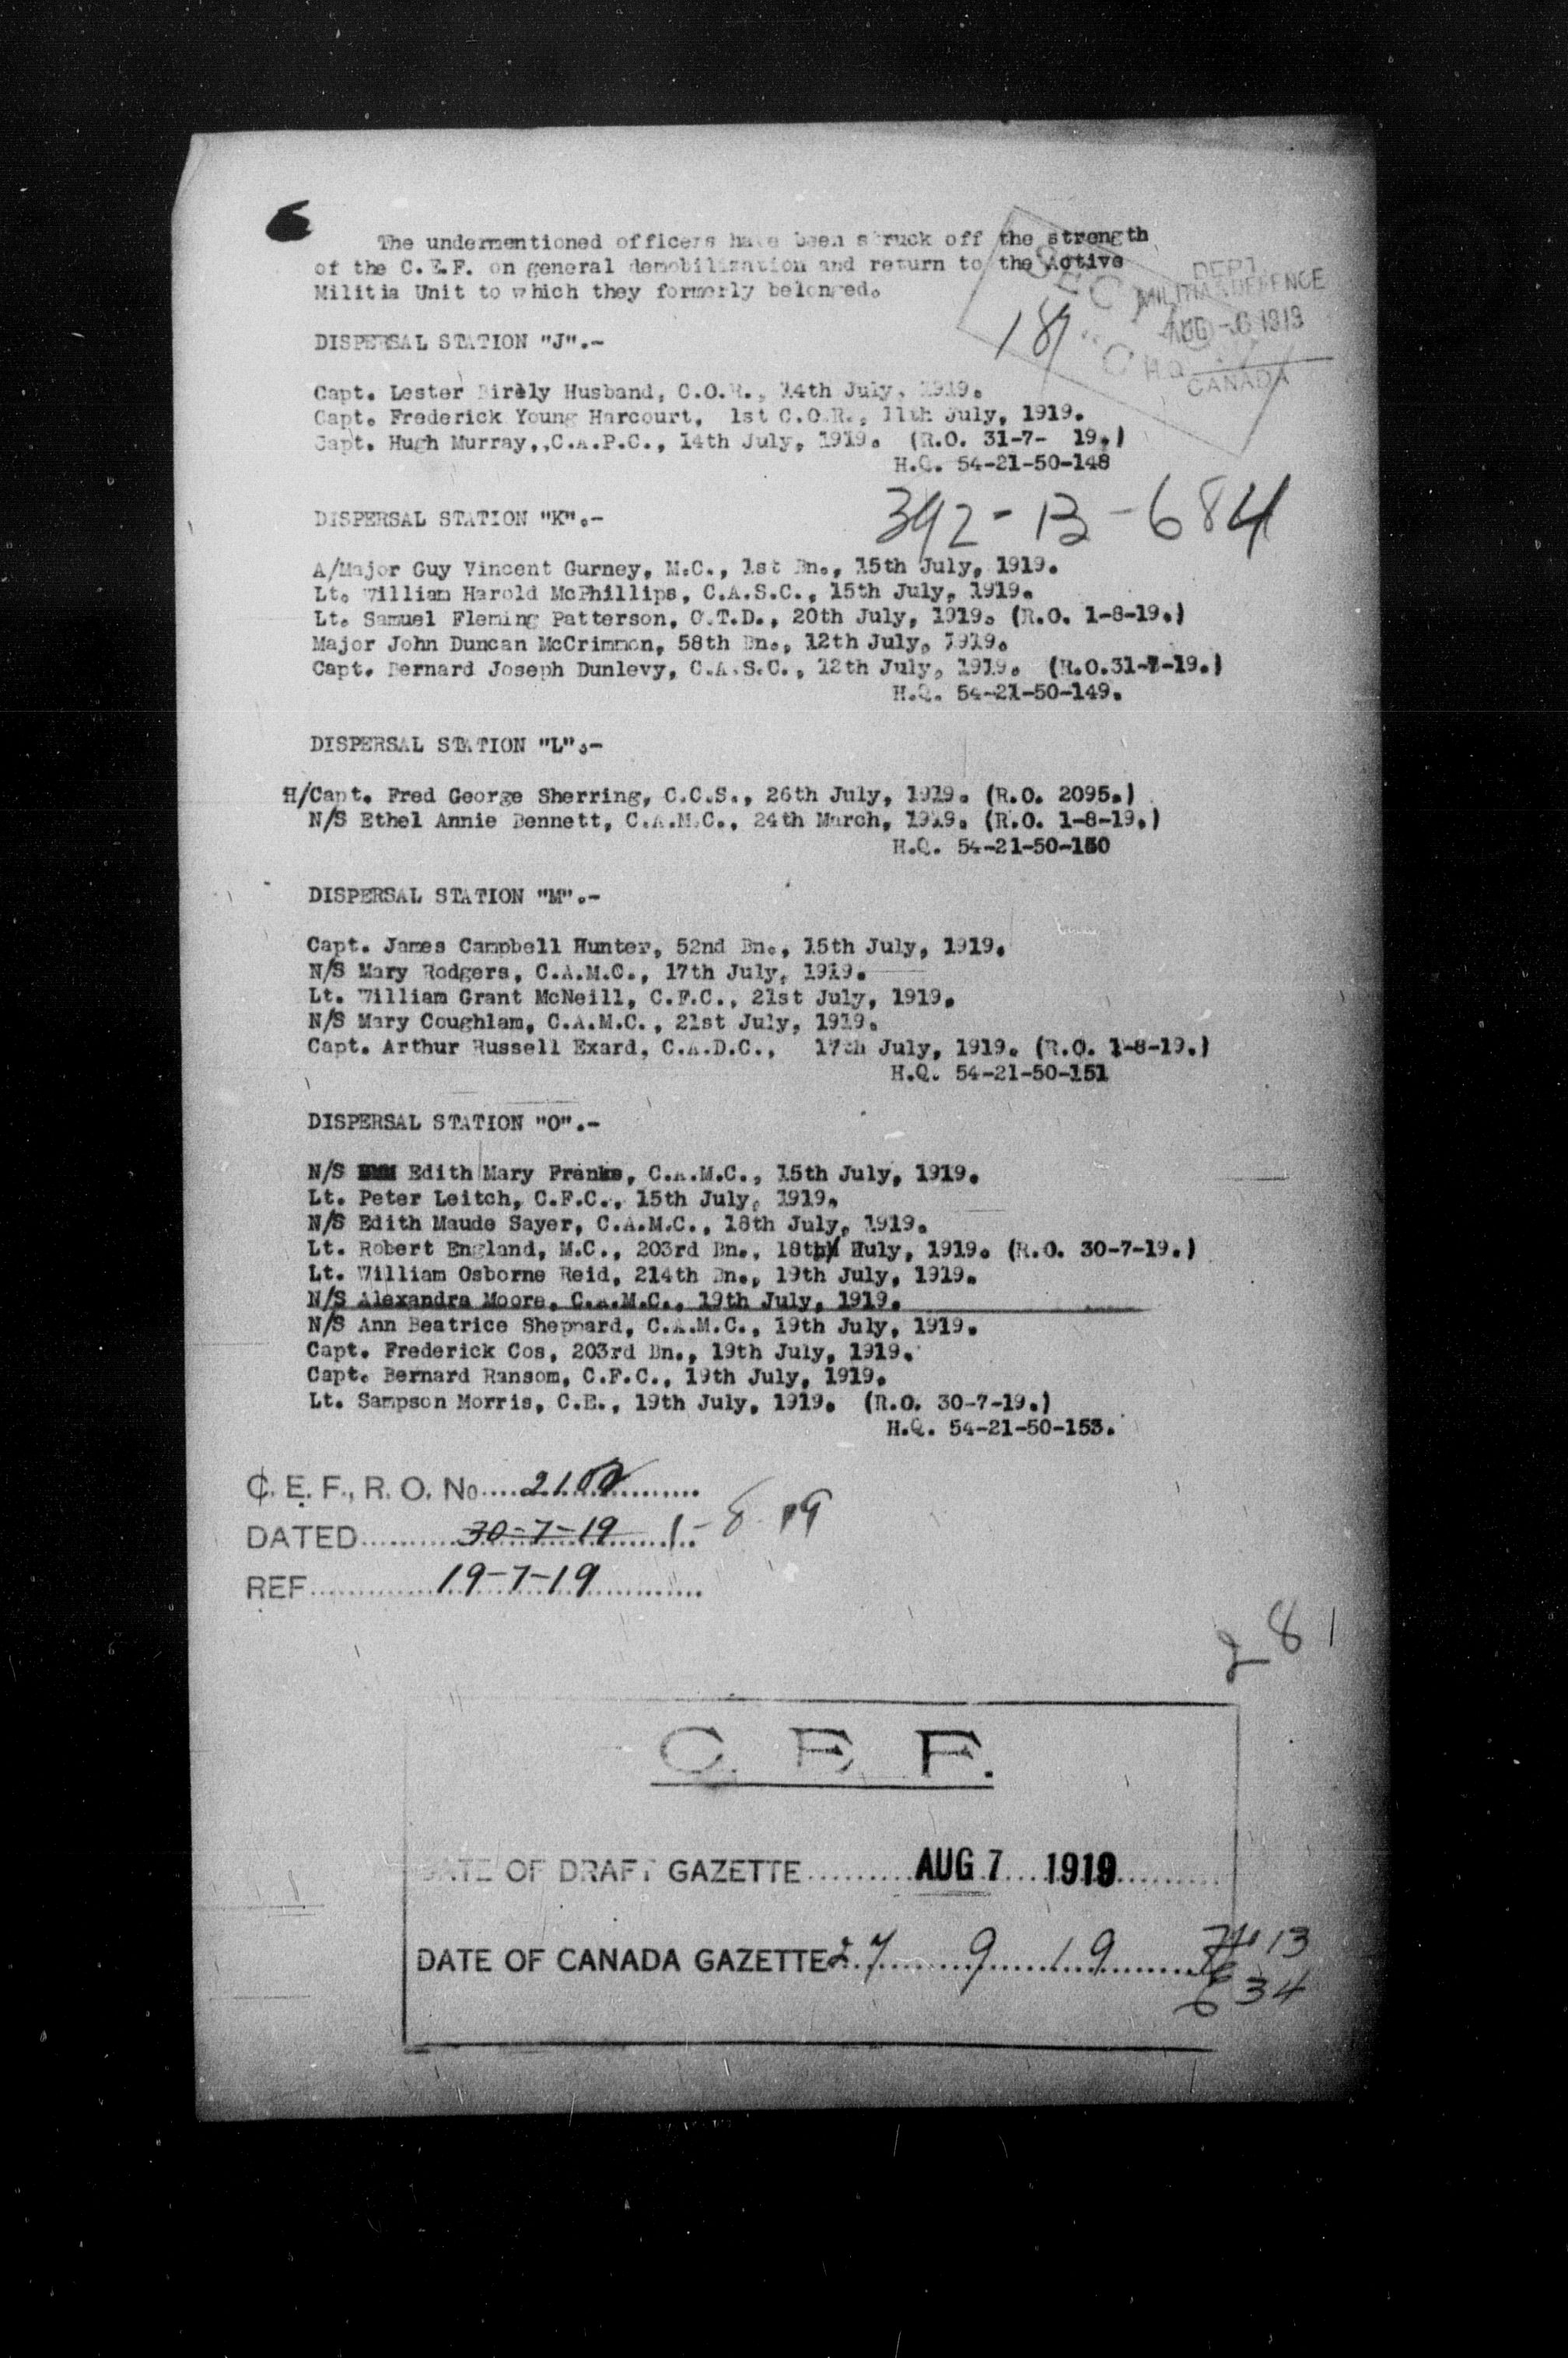 6
The undermentioned officers have been struck off the strength
of the C.E.F. on general demobilization and return to the Active
Militia Unit to which they formerly belonged.
DEPT
MILITIA & DEFENCE
AUG -6 1919
H.Q.
CANADA
SEC
"C
187
DISPERSAL STATION "J".-
Capt. Lester Birely Husband, C.O.R., 14th July, 1919.
Capt. Frederick Young Harcourt, 1st C.O.R., 11th July, 1919.
Capt. Hugh Murray,,C.A.P.C., 14th July, 1919. (R.O. 31-7- 19.)
H.Q. 54-21-50-148
392-13-684
DISPERSAL STATION "K".-
A/Major Guy Vincent Gurney, M.C., 1st Bn., 15th July, 1919.
Lt. William Harold McPhillips, C.A.S.C., 15th July, 1919.
Lt. Samuel Fleming Patterson, C.T.D., 20th July, 1919. (R.O. 1-8-19.)
Major John Duncan McCrimmon, 58th Bn., 12th July, 1919.
Capt. Bernard Joseph Dunlevy, C.A.S.C., 12th July, 1919. (R.O.31-7-19.)
H.Q. 54-21-50-149.
DISPERSAL STATION "L".-
H/Capt. Fred George Sherring, C.C.S., 26th July, 1919. (R.O. 2095.)
N/S Ethel Annie Bennett, C.A.M.C., 24th March, 1919. (R.O. 1-8-19.)
H.Q. 54-21-50-150
DISPERSAL STATION "M".-
Capt. James Campbell Hunter, 52nd Bn., 15th July, 1919.
N/S Mary Rodgers, C.A.M.C., 17th July, 1919.
Lt. William Grant McNeill, C.F.C., 21st July, 1919.
N/S Mary Coughlam, C.A.M.C., 21st July, 1919.
Capt. Arthur Russell Exard, C.A.D.C., 17th July, 1919. (R.O. 1-8-19.)
H.Q. 54-21-50-151
DISPERSAL STATION "O".-
N/S Edith Mary Franks, C.A.M.C., 15th July, 1919.
Lt. Peter Leitch, C.F.C., 15th July, 1919.
N/S Edith Maude Sayer, C.A.M.C., 18th July, 1919.
Lt. Robert England, M.C., 203rd Bn., 18th Huly, 1919. (R.O. 30-7-19.)
Lt. William Osborne Reid, 214th Bn., 19th July, 1919.
N/S Alexandra Moore, C.A.M.C., 19th July, 1919.
N/S Ann Beatrice Sheppard, C.A.M.C., 19th July, 1919.
Capt. Frederick Cos, 203rd Bn., 19th July, 1919.
Capt. Bernard Ransom, C.F.C., 19th July, 1919.
Lt. Sampson Morris, C.E., 19th July, 1919. (R.O. 30-7-19.)
H.Q. 54-21-50-153.
C. E. F., R. O. No....2100..........
DATED..........30-7-19....1-8-19
REF..........19-7-19..........
281
C. E. F.
DATE OF DRAFT GAZETTE.......AUG 7 1919.......
DATE OF CANADA GAZETTE 27.....9.....19.....
13
634